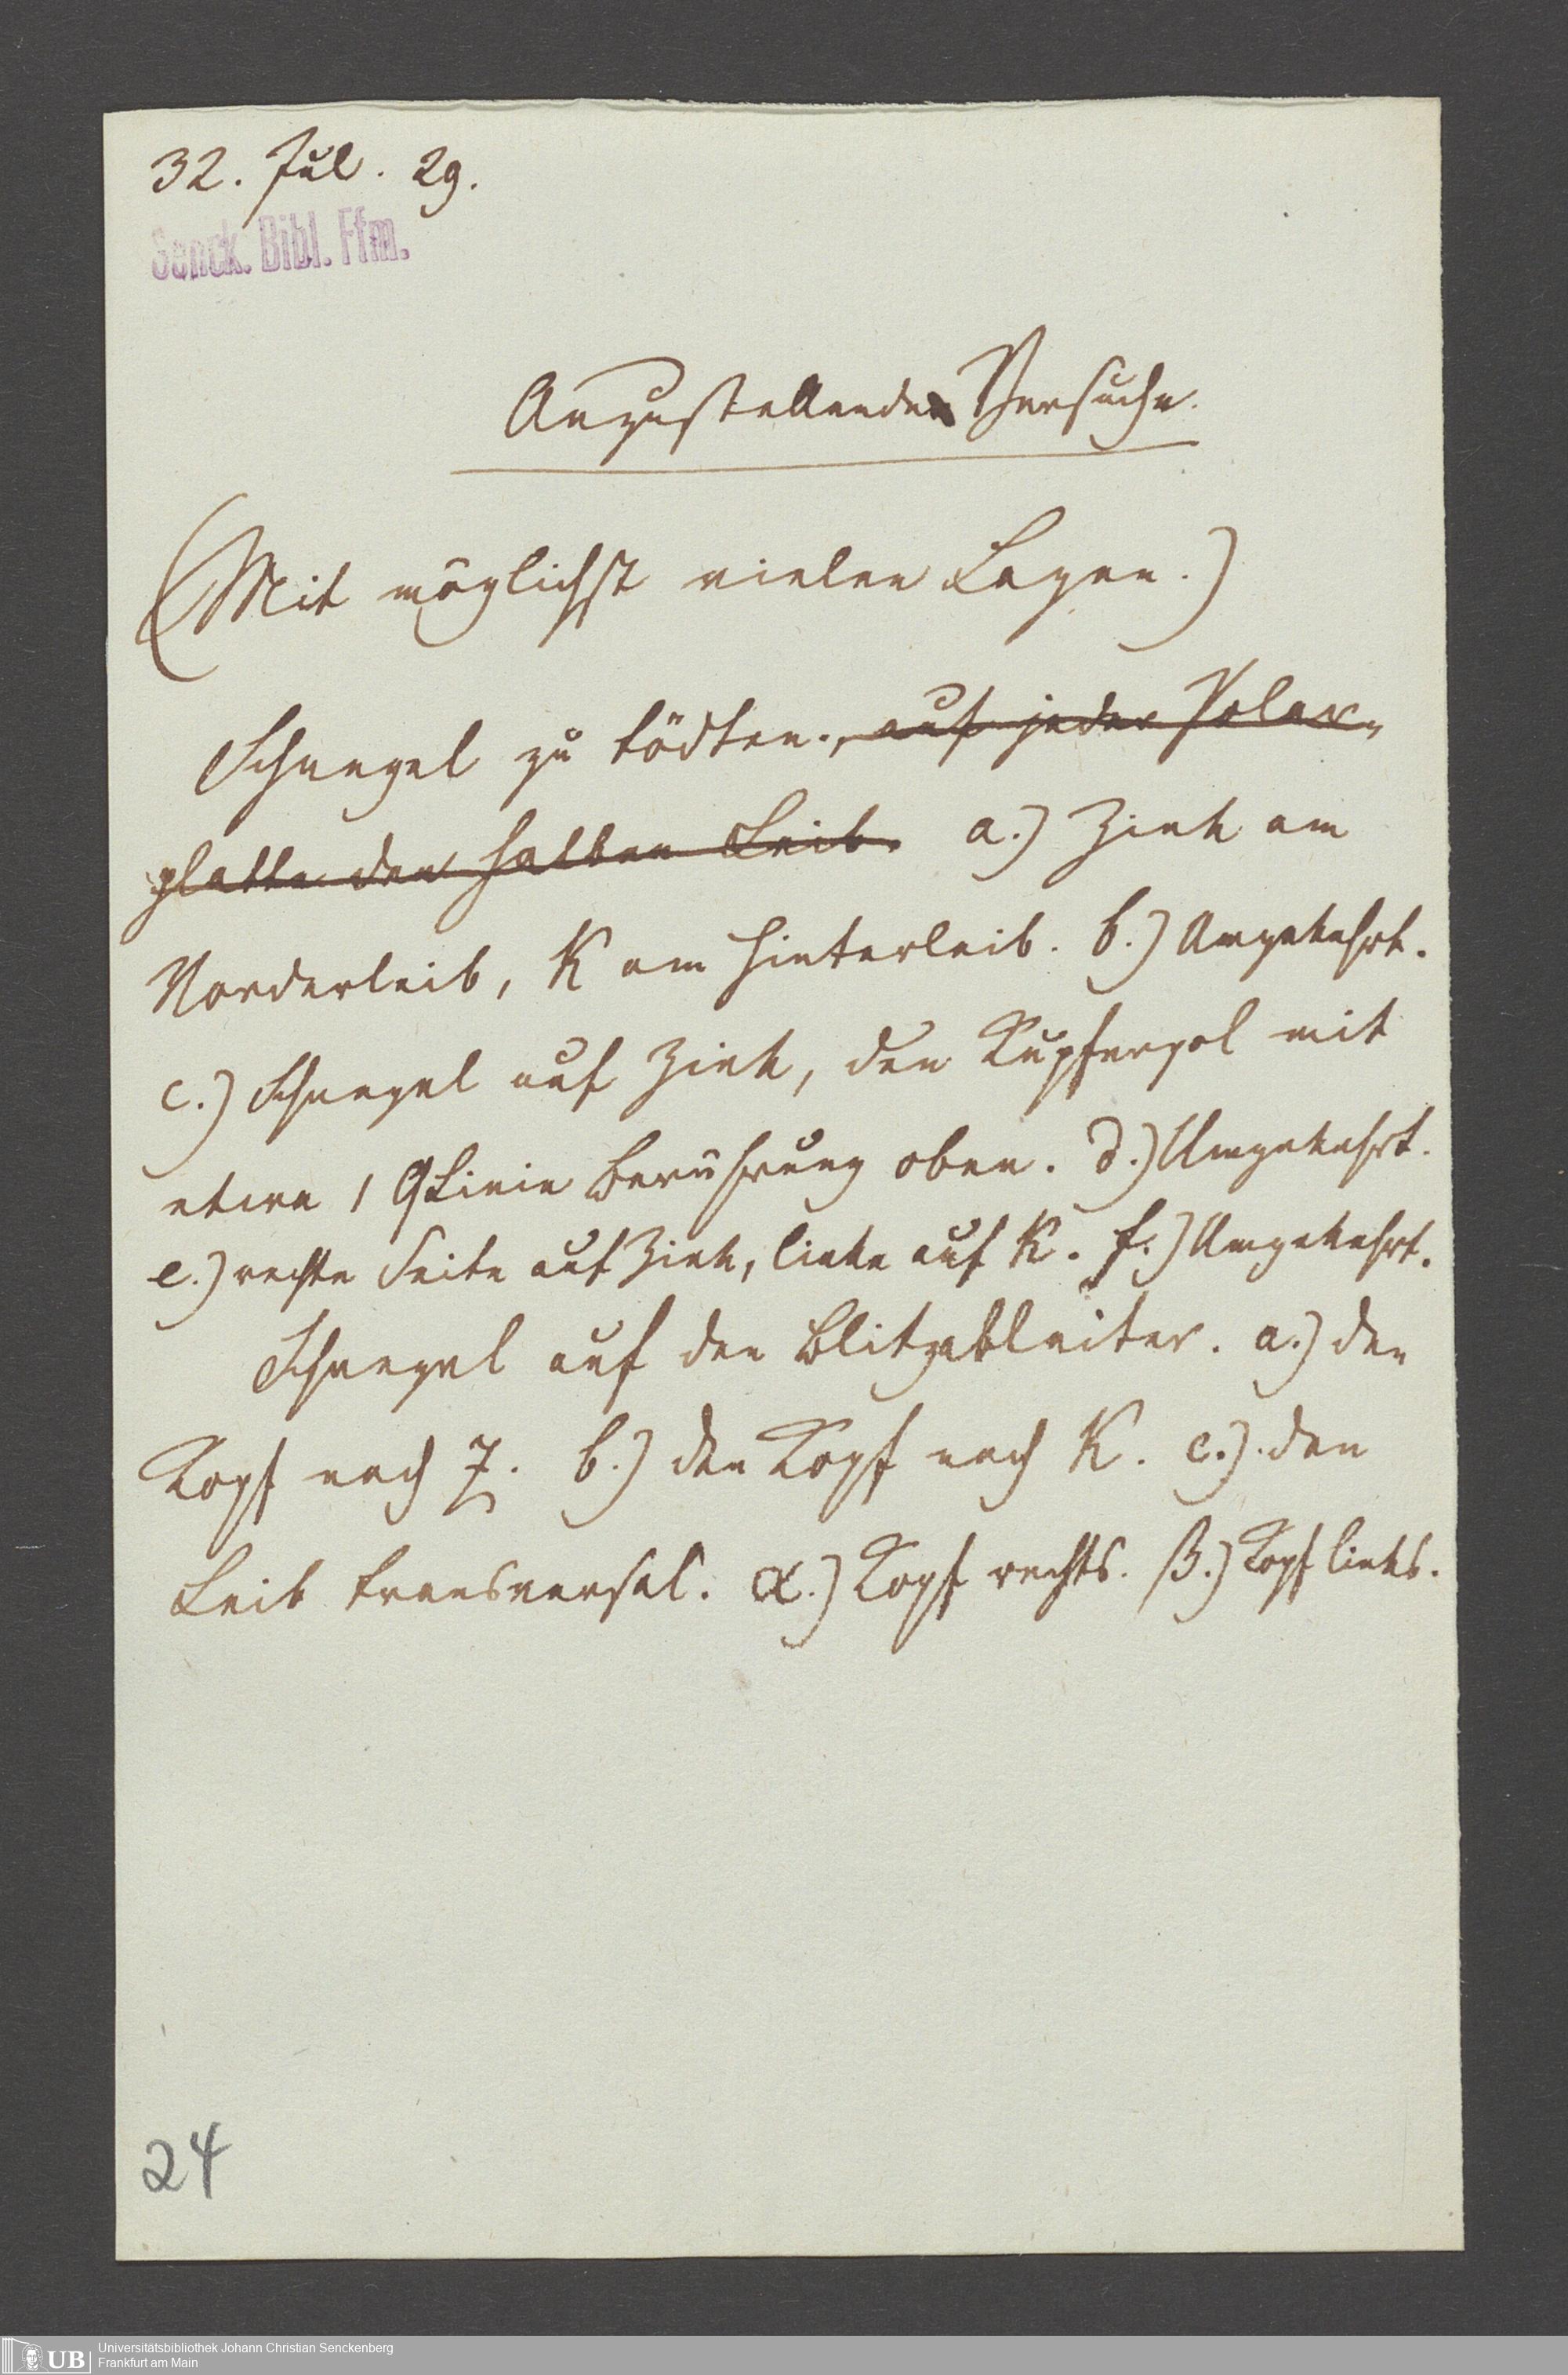 32. Jul. 29.
Senck. Bibl. Ffm.
Anzustellende Versuche.
(Mit möglichst vielen Lagen.)
Schnegel zu tödten., auf jeder Polar-
platte den halben Leib. a.) Zink am
Vorderleib, K am Hinterleib. b.) Umgekehrt.
c.) Schnegel auf Zink, den Kupferpol mit
etwa 1 QLinie Berührung oben. d.) Umgekehrt.
e.) rechte Seite auf Zink, linke auf K. f.) Umgekehrt.
Schnegel auf den Blitzableiter. a.) den
Kopf nach Z. b.) den Kopf nach K. c.) den
Leib transversal. α.) Kopf rechts. β.) Kopf links.
24
UB
Universitätsbibliothek Johann Christian Senckenberg
Frankfurt am Main